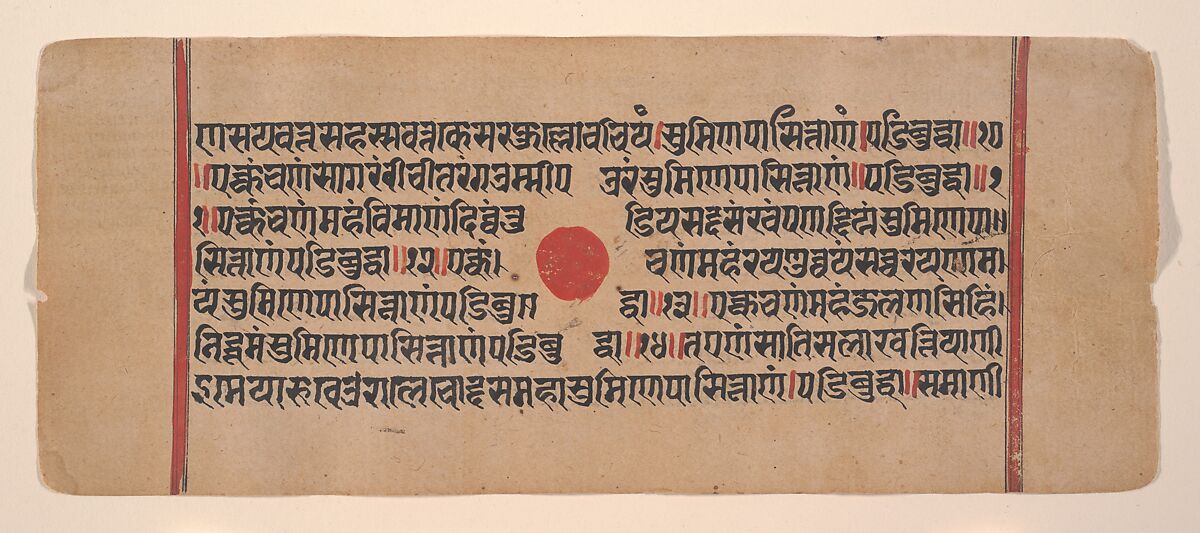 णसयवन्नसहस्सवन्नाकसरफुल्लावचियं।सुमिणपासित्ताणं।पडिबुद्धा॥१०
॥एक्कंचणंसागरंवीचीतरंगउम्मीप उरंसुमिणपासित्ताणं॥पडिबुद्धा॥१
१॥एक्कंचणंमहंविमाणंदिव्वंतु डियसद्दसंखपणद्दितंसुमिणपा॥
सित्ताणंपडिबुद्धा॥१२॥एक्कं। चणंमहंरयणुव्वयंसव्वरयणामा।
यंसुमिणपासित्ताणंपडिबु॥ द्धा॥१३॥एक्कचणंमहंजलणसिहिं।
निद्धूमंसुमिणपासित्ताणंपडिबु द्धा॥१४॥तएणंसातिसलाखत्तियाणी
इमेयारूवेउरालेचोद्दसमहासुमिणपासित्ताणं।पडिबुद्धा॥समाणी